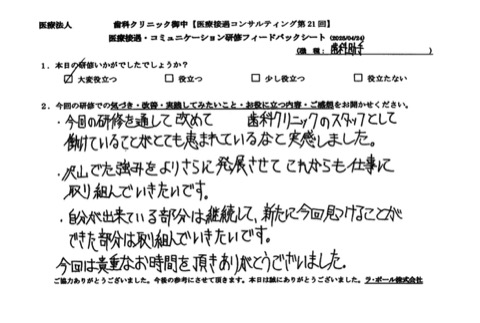 医療法人　　　歯科クリニック御中【医療接遇コンサルティング第21回】
医療接遇・コミュニケーション研修フィードバックシート(2025/04/24)
(職種：歯科助手)
1．本日の研修いかがでしたでしょうか？
☑ 大変役立つ　□ 役立つ　□ 少し役立つ　□ 役立たない
2．今回の研修での気づき・改善・実践してみたいこと・お役に立つ内容・ご感想をお聞かせください。
・今回の研修を通して改めて　　歯科クリニックのスタッフとして
働けていることがとても恵まれているなと実感しました。
・沢山でた強みをよりさらに発展させてこれからも仕事に
取り組んでいきたいです。
・自分が出来ている部分は継続して、新たに今回見つけることが
できた部分は取り組んでいきたいです。
今回は貴重なお時間を頂きありがとうございました。
ご協力ありがとうございました。今後の参考にさせて頂きます。本日は誠にありがとうございました。ラ・ポール株式会社